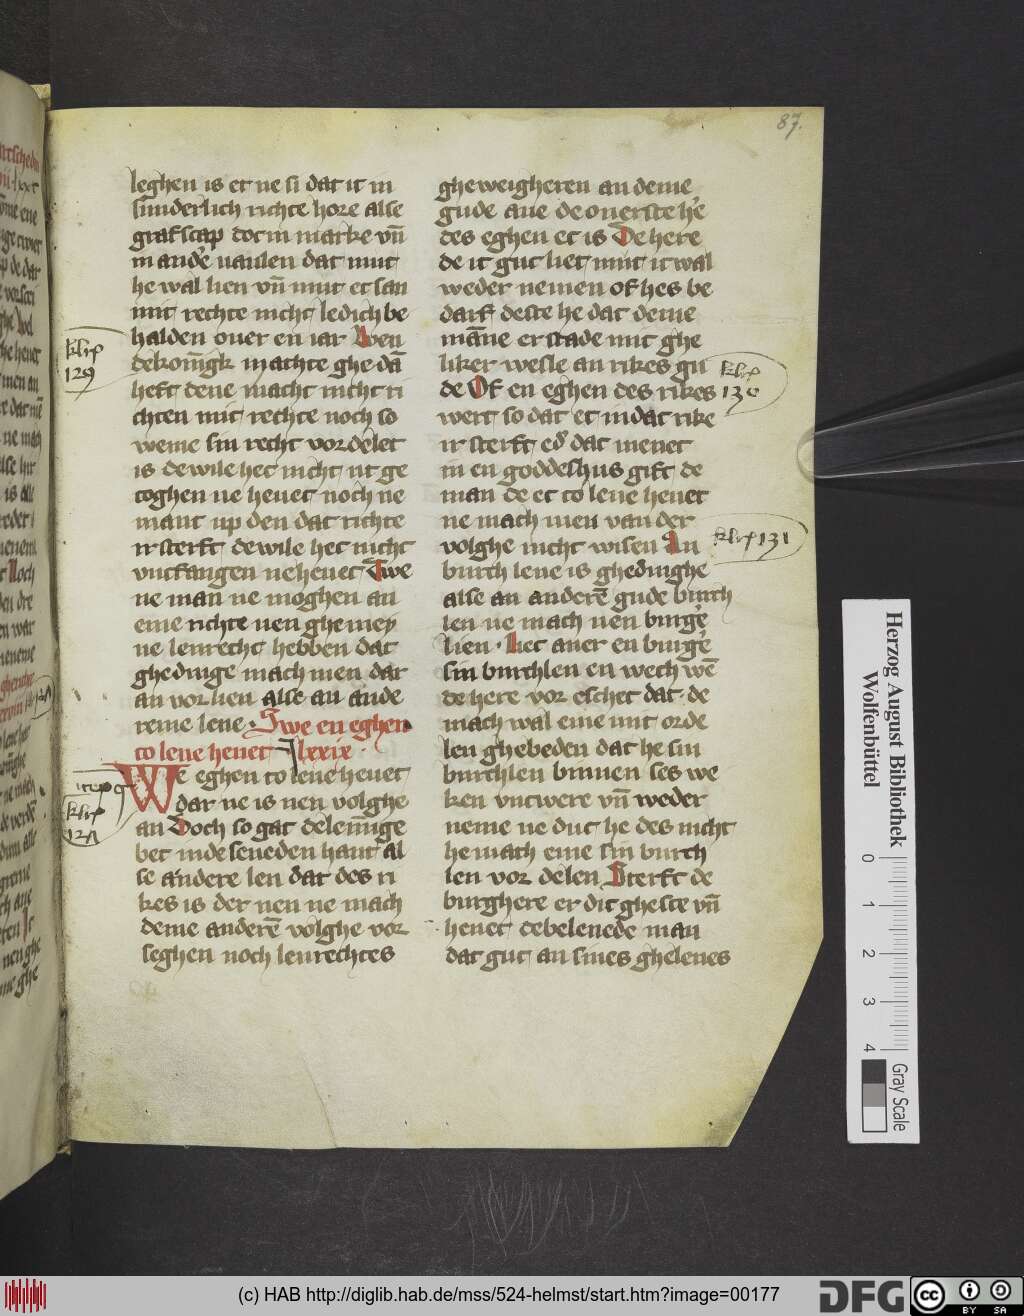 87.
leghen is et ne si dat it in
sunderlich richte hore alse
grafscap dorin marke vn̄
in and'e uanlen dat mut
he wal lien vn̄ mut et san
mit rechte nicht ledich be
halden ouer en iar Wen
dekonīgk machte ghe dā
heft dene macht nicht ri
chten mit rechte noch so
weme sin recht vordelet
is dewile het nicht ut ge
toghen ne heuet noch ne
mant up den dat richte
irsterft dewile het nicht
vntfangen neheuet Twe
ne man ne moghen an
eme richte nen ghemey
ne lenrecht hebben dat
ghedinge mach men dar
an vorlien alse an ande
reme lene Swe en eghen
to lene heuet lxxix
We eghen to lene heuet
dar ne is nen volghe
an Doch so gat delenn̄ige
bet inde seueden hant al
se andere len dat des ri
kes is der nen ne mach
deme anderē volghe vor
seghen noch lenrechtes
gheweigheren an deme
gude aue de ouerste h'e
des eghen et is De here
de it gut liet mut it wal
weder nemen of hes be
darf deste he dat deme
māne erstade mit ghe
liker wesle an rikes gu
de Of en eghen des rikes
wert so dat et in dat rike
irsterft ed' dat menet
in en goddeshus gift de
man de et to lene heuet
ne mach men van der
volghe nicht wisen An
burch lene is ghedinghe
alse an anderē gude burch
len ne mach nen burg'e
lien Let auer en burg'e
sin burchlen en wech wē
de here vor eschet dat de
mach wal eme mit orde
len ghebeden dat he sin
burchlen binnen ses we
ken vntwere vn̄ weder
neme ne dut he des nicht
he mach eme sin burch
len vor delen Sterft de
burghere er dit gheste vn̄
heuet tebelenede man
dat gut an sines ghelenes
129
130
131
Herzog August Bibliothek
Wolfenbüttel
0 1 2 3 4
Gray Scale
(c) HAB http://diglib.hab.de/mss/524-helmst/start.htm?image=00177
DFG
cc BY SA